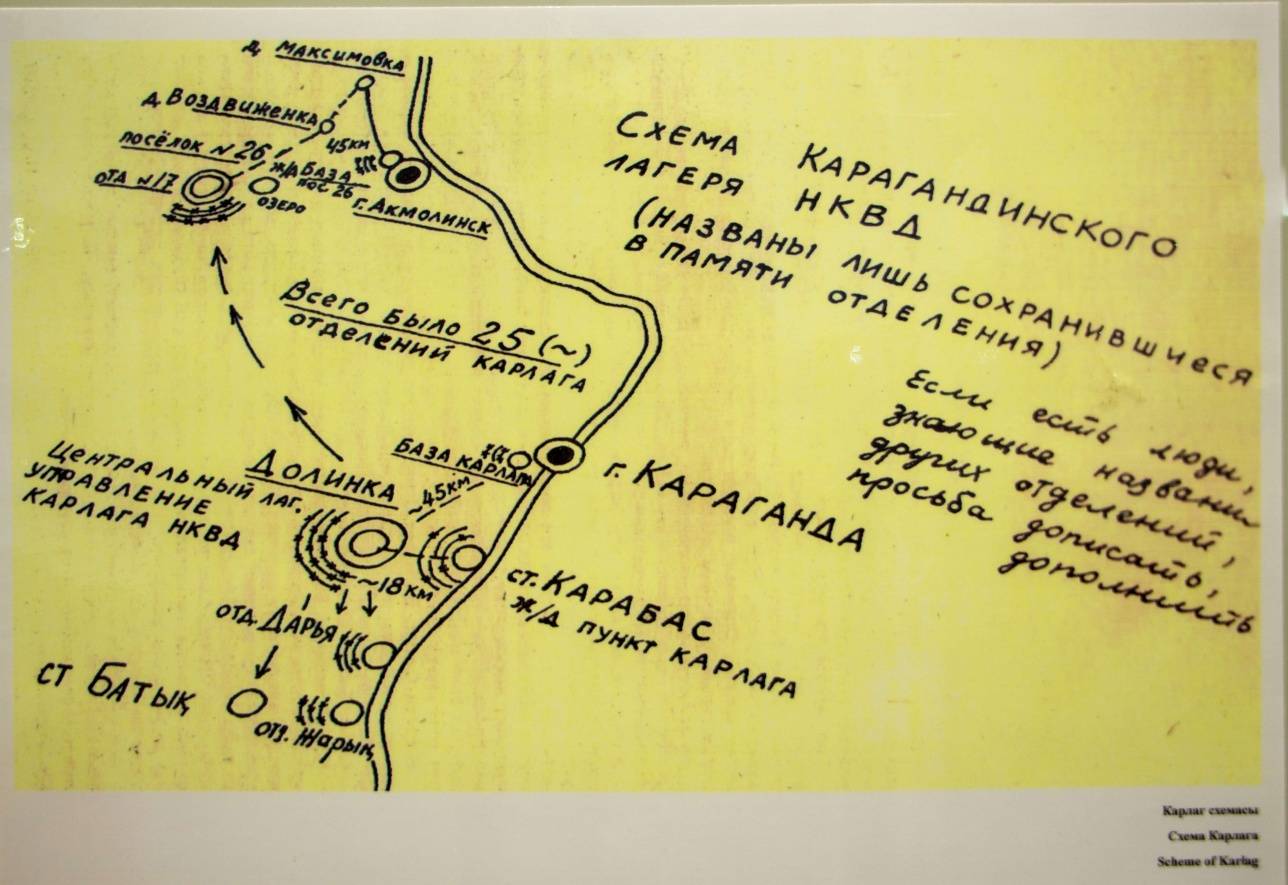 д. Максимовка
д. Воздвиженка
45 км
посёлок №26
отд №17
озеро
ж/д База
пос. 26
г. Акмолинск
Схема Карагандинского
лагеря НКВД
(названы лишь сохранившиеся
в памяти отделения)
Всего было 25 (~)
отделений Карлага
Если есть люди,
знающие названия
других отделений,
просьба дописать,
дополнить
База Карлага
г. Караганда
Долинка
~45км
Центральный лаг.
управление
Карлага НКВД
~18 км
ст. Карабас
ж/д пункт Карлага
отд. Дарья
ст Батық
отд. Жарық
Карлаг схемасы
Схема Карлага
Scheme of Karlag